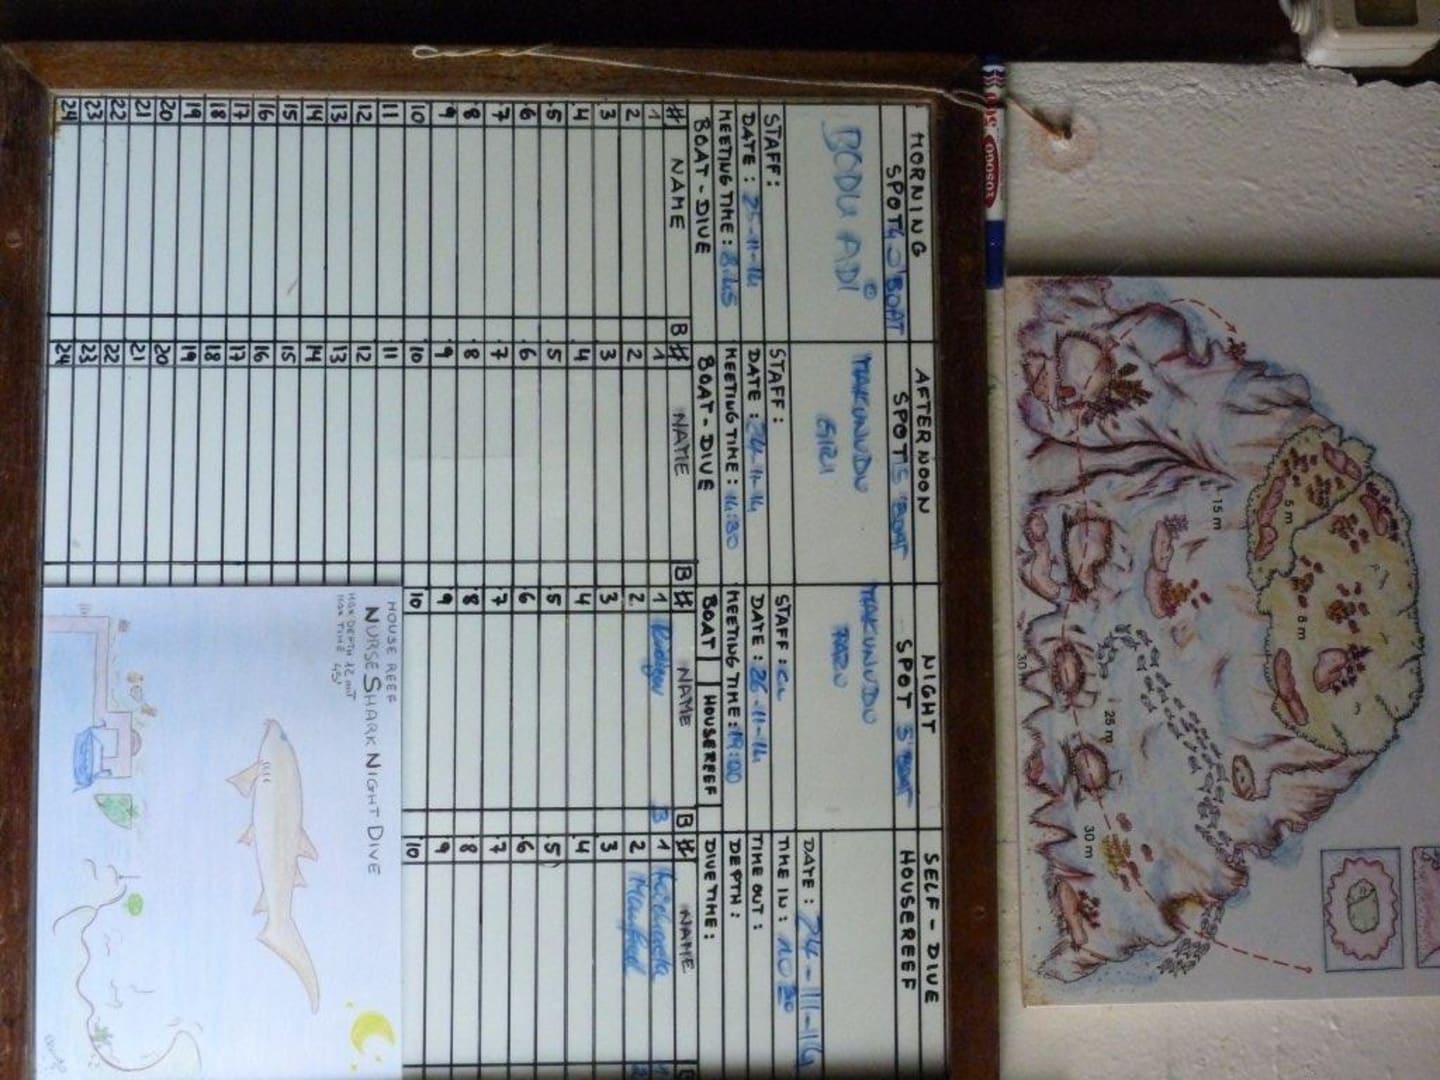 MORNING
SPOT 4 3'BOAT
BODU ADI
STAFF:
DATE: 25-11-14
MEETING TIME: 8:45
BOAT-DIVE
# NAME B
1
2
3
4
5
6
7
8
9
10
11
12
13
14
15
16
17
18
19
20
21
22
23
24
AFTERNOON
SPOT 5'BOAT
MAKUNUDU
GIRI
STAFF:
DATE: 24-11-14
MEETING TIME: 14:30
BOAT-DIVE
# NAME B
1
2
3
4
5
6
7
8
9
10
11
12
13
14
15
16
17
18
19
20
21
22
23
24
NIGHT
SPOT 5'BOAT
MAKUNUDU
PARU
STAFF:
DATE: 26-11-14
MEETING TIME: 19:00
BOAT HOUSEREEF
# NAME B
1
2
3
4
5
6
7
8
9
10
SELF-DIVE
HOUSEREEF
DATE: 24-11-14
TIME IN: 10 30
TIME OUT:
DEPTH:
DIVE TIME:
# NAME B
1
2 Manfred
3
4
5
6
7
8
9
10
HOUSE REEF
NURSE SHARK NIGHT DIVE
MAX DEPTH 12 MT
MAX TIME 45'
5 m
8 m
15 m
25 m
30
30 m